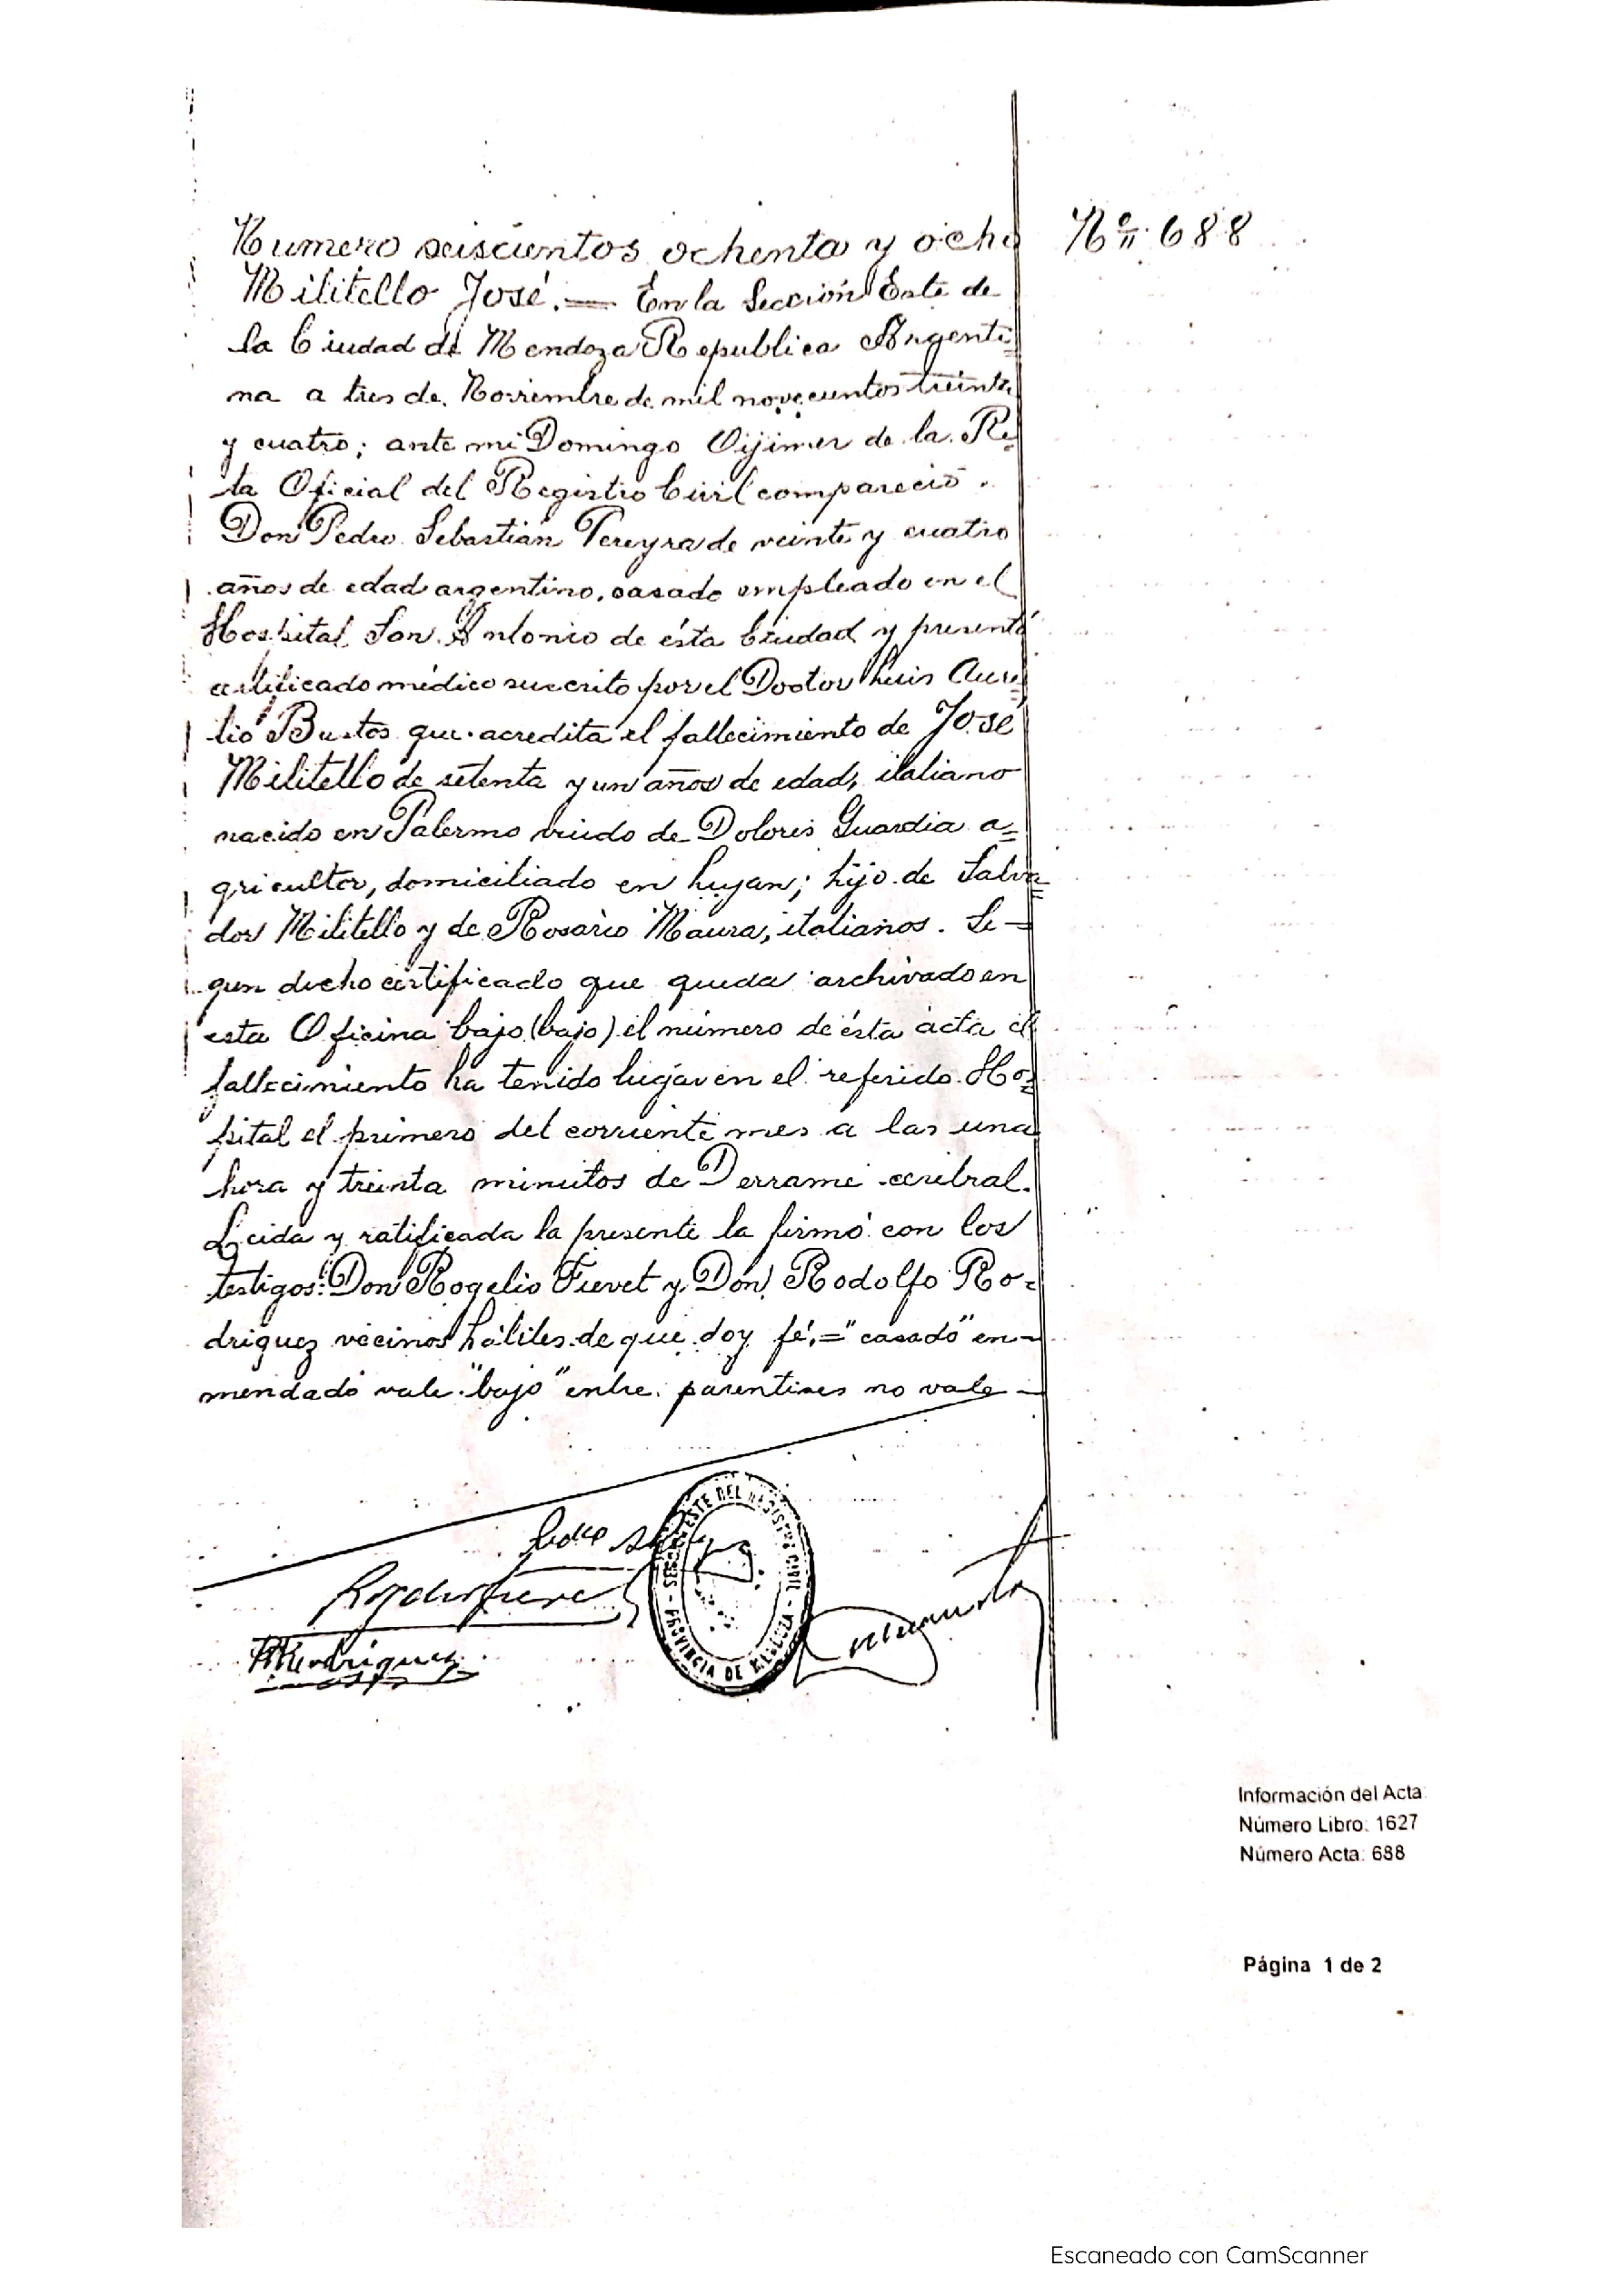 Numero seiscientos ochenta y ocho
Nº 688
Militello José.— En la Sección Este de
la Ciudad de Mendoza Republica Argenti=
na a tres de Noviembre de mil novecientos treinta
y cuatro; ante mi Domingo de la Re=
ta Oficial del Registro Civil compareció
Don Pedro Sebastián Pereyra de veinte y cuatro
años de edad argentino, casado empleado en el
Hospital San Antonio de ésta Ciudad y presentó
certificado médico suscrito por el Doctor Luis Aure=
lio Bustos que acredita el fallecimiento de José
Militello de setenta y un años de edad, italiano
nacido en Palermo viudo de Dolores Guardia a=
gricultor, domiciliado en Luyan; hijo de Salva=
dor Militello y de Rosario Maura, italianos. Se=
gun dicho certificado que queda archivado en
esta Oficina bajo (bajo) el número de ésta acta el
fallecimiento ha tenido lugar en el referido Hos=
pital el primero del corriente mes a las una
hora y treinta minutos de Derrame cerebral.
Leida y ratificada la presente la firmó con los
testigos: Don Rogelio Fievet y Don Rodolfo Ro=
driguez vecinos hábiles de que doy fé.="casado" en=
mendado vale "bajo" entre parentises no vale—
SECCION ESTE DEL REGISTRO CIVIL - PROVINCIA DE MENDOZA -
RRodriguez
Información del Acta:
Número Libro: 1627
Número Acta: 688
Página 1 de 2
Escaneado con CamScanner